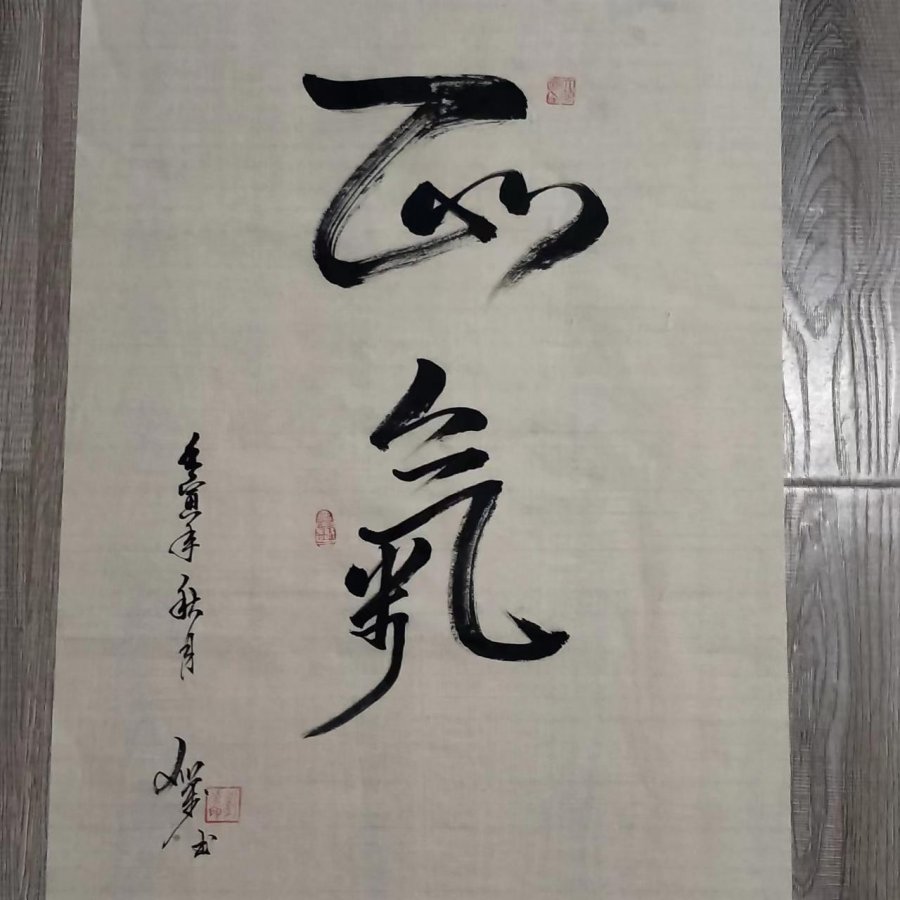 正氣
壬寅年秋月
书